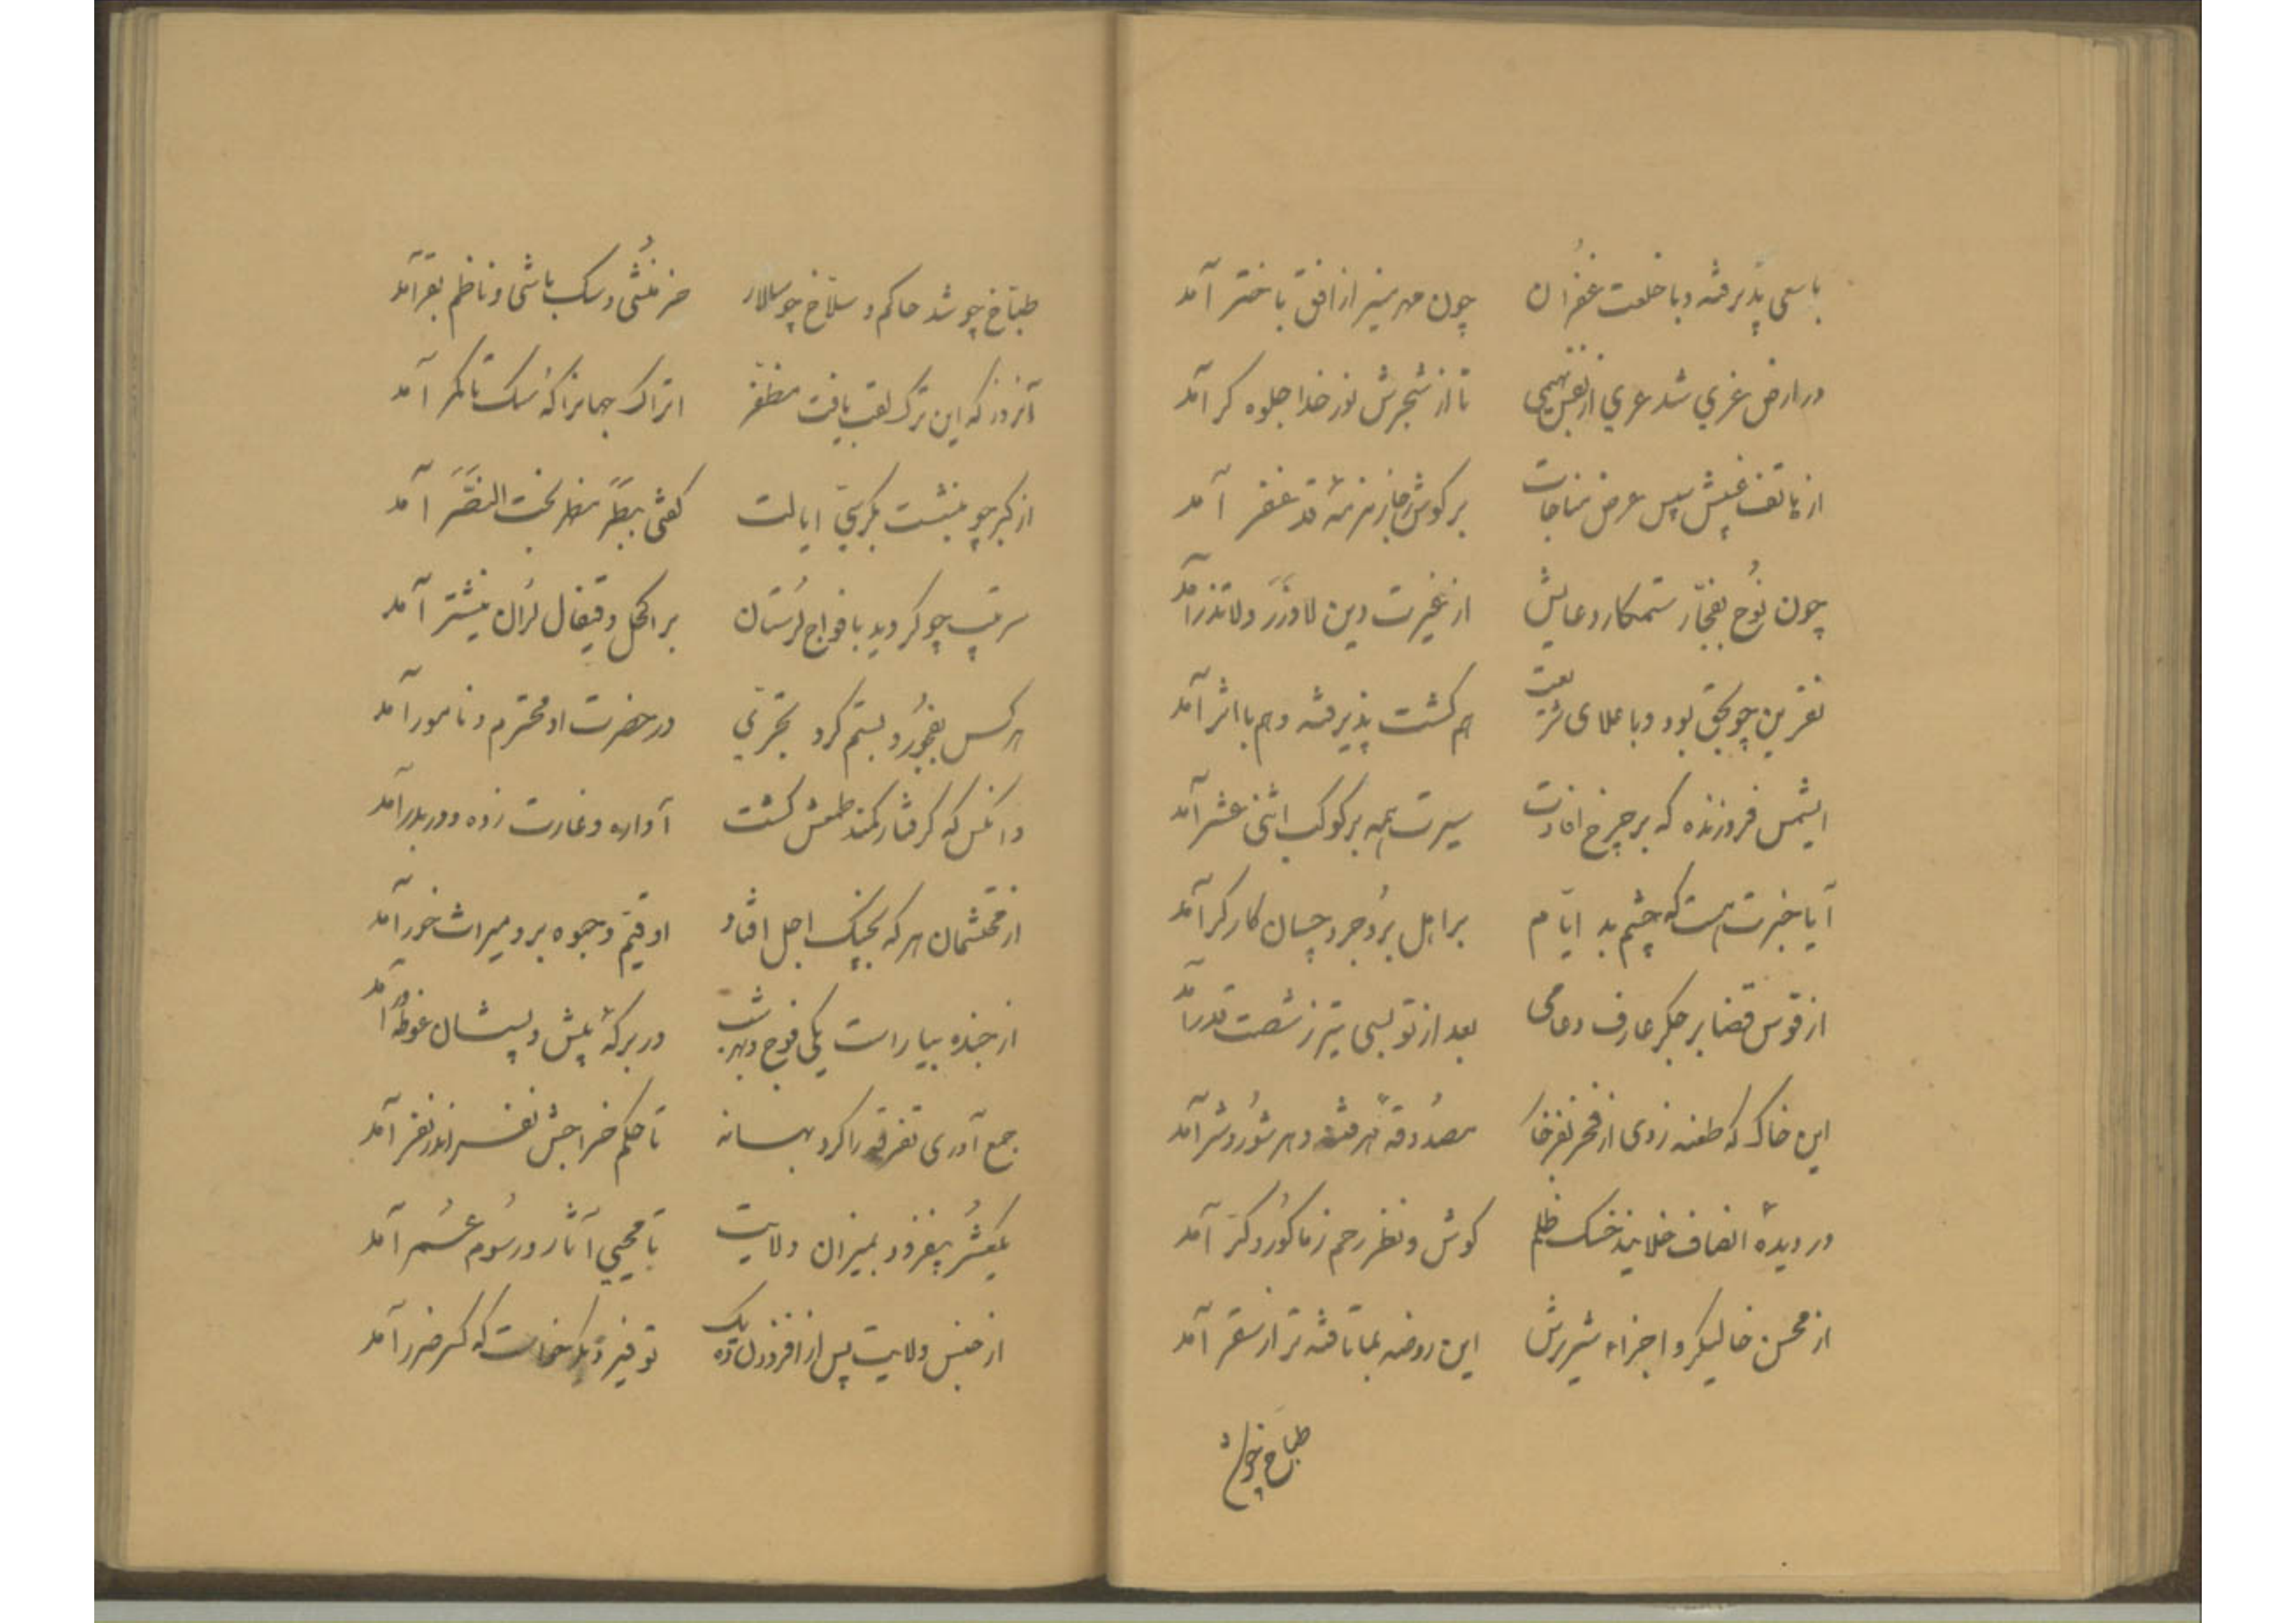 باسعی پذیرفته و با خلعت غفران چون مهر منیر از افق باختر آمد
در ارض غری شد عری از نفس بهیمی تا از شجرش نور خدا جلوه کر آمد
از هاتف غیبش سپس عرض مناجات بر کوش زمزمهٔ قد غفر آمد
چون نوح بفجّار ستمکار دعایش از غیرت دین لاوزر ولاتذر آمد
نفرین چو بحق بود و با علای شریعت هم کشت پذیرفته و هم با اثر آمد
ایشمس فروزنده که بر چرخ افادت سیرت همه بر کوکب اثنی عشر آمد
آیا خبرت هست که چشم بد ایّام بر اهل بروجرد چسان کارکر آمد
از قوس قضا بر جکر عارف و عامی بعد از تو بسی تیر ز شصت قدر آمد
این خاک که طعنه زدی از فخر مصدوقهٔ هر فتنه و هر شور و شر آمد
در دیدهٔ انصاف خلایق خسک ظلم کوش و نظر رحم زما کور و کر آمد
از محسن خالیکر و اجزاء شریرش این روضه بما تافته تر از سقر آمد
طبّاخ چو شد
طبّاخ چو شد حاکم و سلّاخ چو سالار خر منشی و سک باشی و ناظم بقر آمد
آنروز که این ترک لقب یافت مظفّر اتراک جهانرا که سک تا کمر آمد
از کبر چو بنشست بکرسیّ ایالت کفتی بنظر بخت النصّر آمد
سرتیپ چو کردید بافواج لرستان بر اکحل و قیفال لران نیشتر آمد
هر کس بفجور و بستم کرد تجرّی در حضرت او محترم و نامور آمد
وانکس که کرفتار کمند طمعش کشت آواره و غارت زده و دربدر آمد
از محتشمان هر که بچنک اجل افتاد او قیّم و جوه بر و میراث خور آمد
از جنده بیاراست یکی فوج و بهر شب در برکهٔ پیش و پسشان غوطه ور آمد
جمع آوری تفرقه را کرد بهانه تا حکم خراجش نفر اندر نفر آمد
یکعشر بیفزود بمیزان ولایت تا محیی آثار و رسوم عمر آمد
از جنس ولایت پس از افزودن ده یک توفیر دکر خواست که کسر ضرر آمد